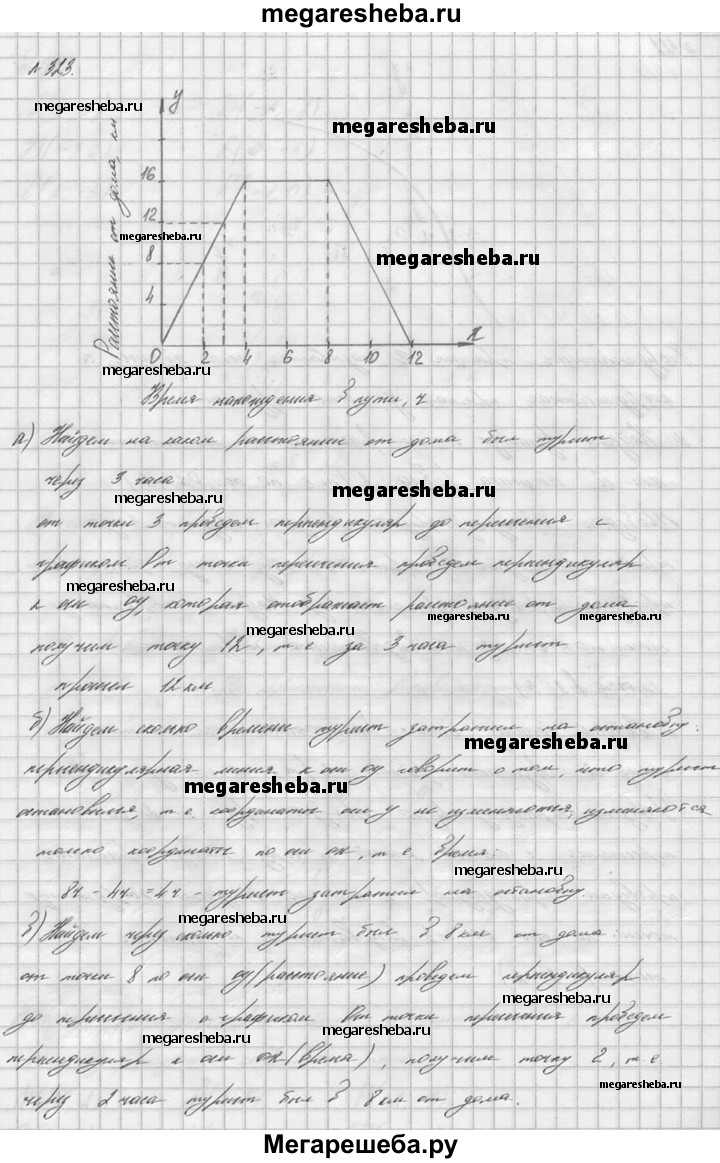 megaresheba.ru
№ 323.
y
megaresheba.ru
megaresheba.ru
Расстояние от дома, км
16
12
megaresheba.ru
8
megaresheba.ru
4
0 2 4 6 8 10 12 x
megaresheba.ru
Время нахождения в пути, ч
а) Найдем на каком расстоянии от дома был турист
через 3 часа
megaresheba.ru
megaresheba.ru
от точки 3 проведем перпендикуляр до пересечения с
графиком. От точки пересечения проведем перпендикуляр
megaresheba.ru
к оси oy, которая отображает расстояние от дома
megaresheba.ru
megaresheba.ru
megaresheba.ru
получим точку 12, т.е за 3 часа турист
прошел 12 км
б) Найдем сколько времени турист затратил на остановку:
megaresheba.ru
перпендикулярная линия к оси oy говорит о том, что турист
megaresheba.ru
остановился, т.е. координаты оси y не изменяются, изменяются
только координаты по оси ox, т.е. время:
megaresheba.ru
8ч - 4ч = 4ч - турист затратил на остановку
megaresheba.ru
в) Найдем через сколько турист был в 8 км от дома:
от точки 8 по оси oy (расстояние) проведем перпендикуляр
megaresheba.ru
до пересечения с графиком. От точки пересечения проведем
megaresheba.ru
megaresheba.ru
перпендикуляр к оси ox (время), получим точку 2, т.е
megaresheba.ru
через 2 часа турист был в 8 км от дома.
Мегарешеба.ру